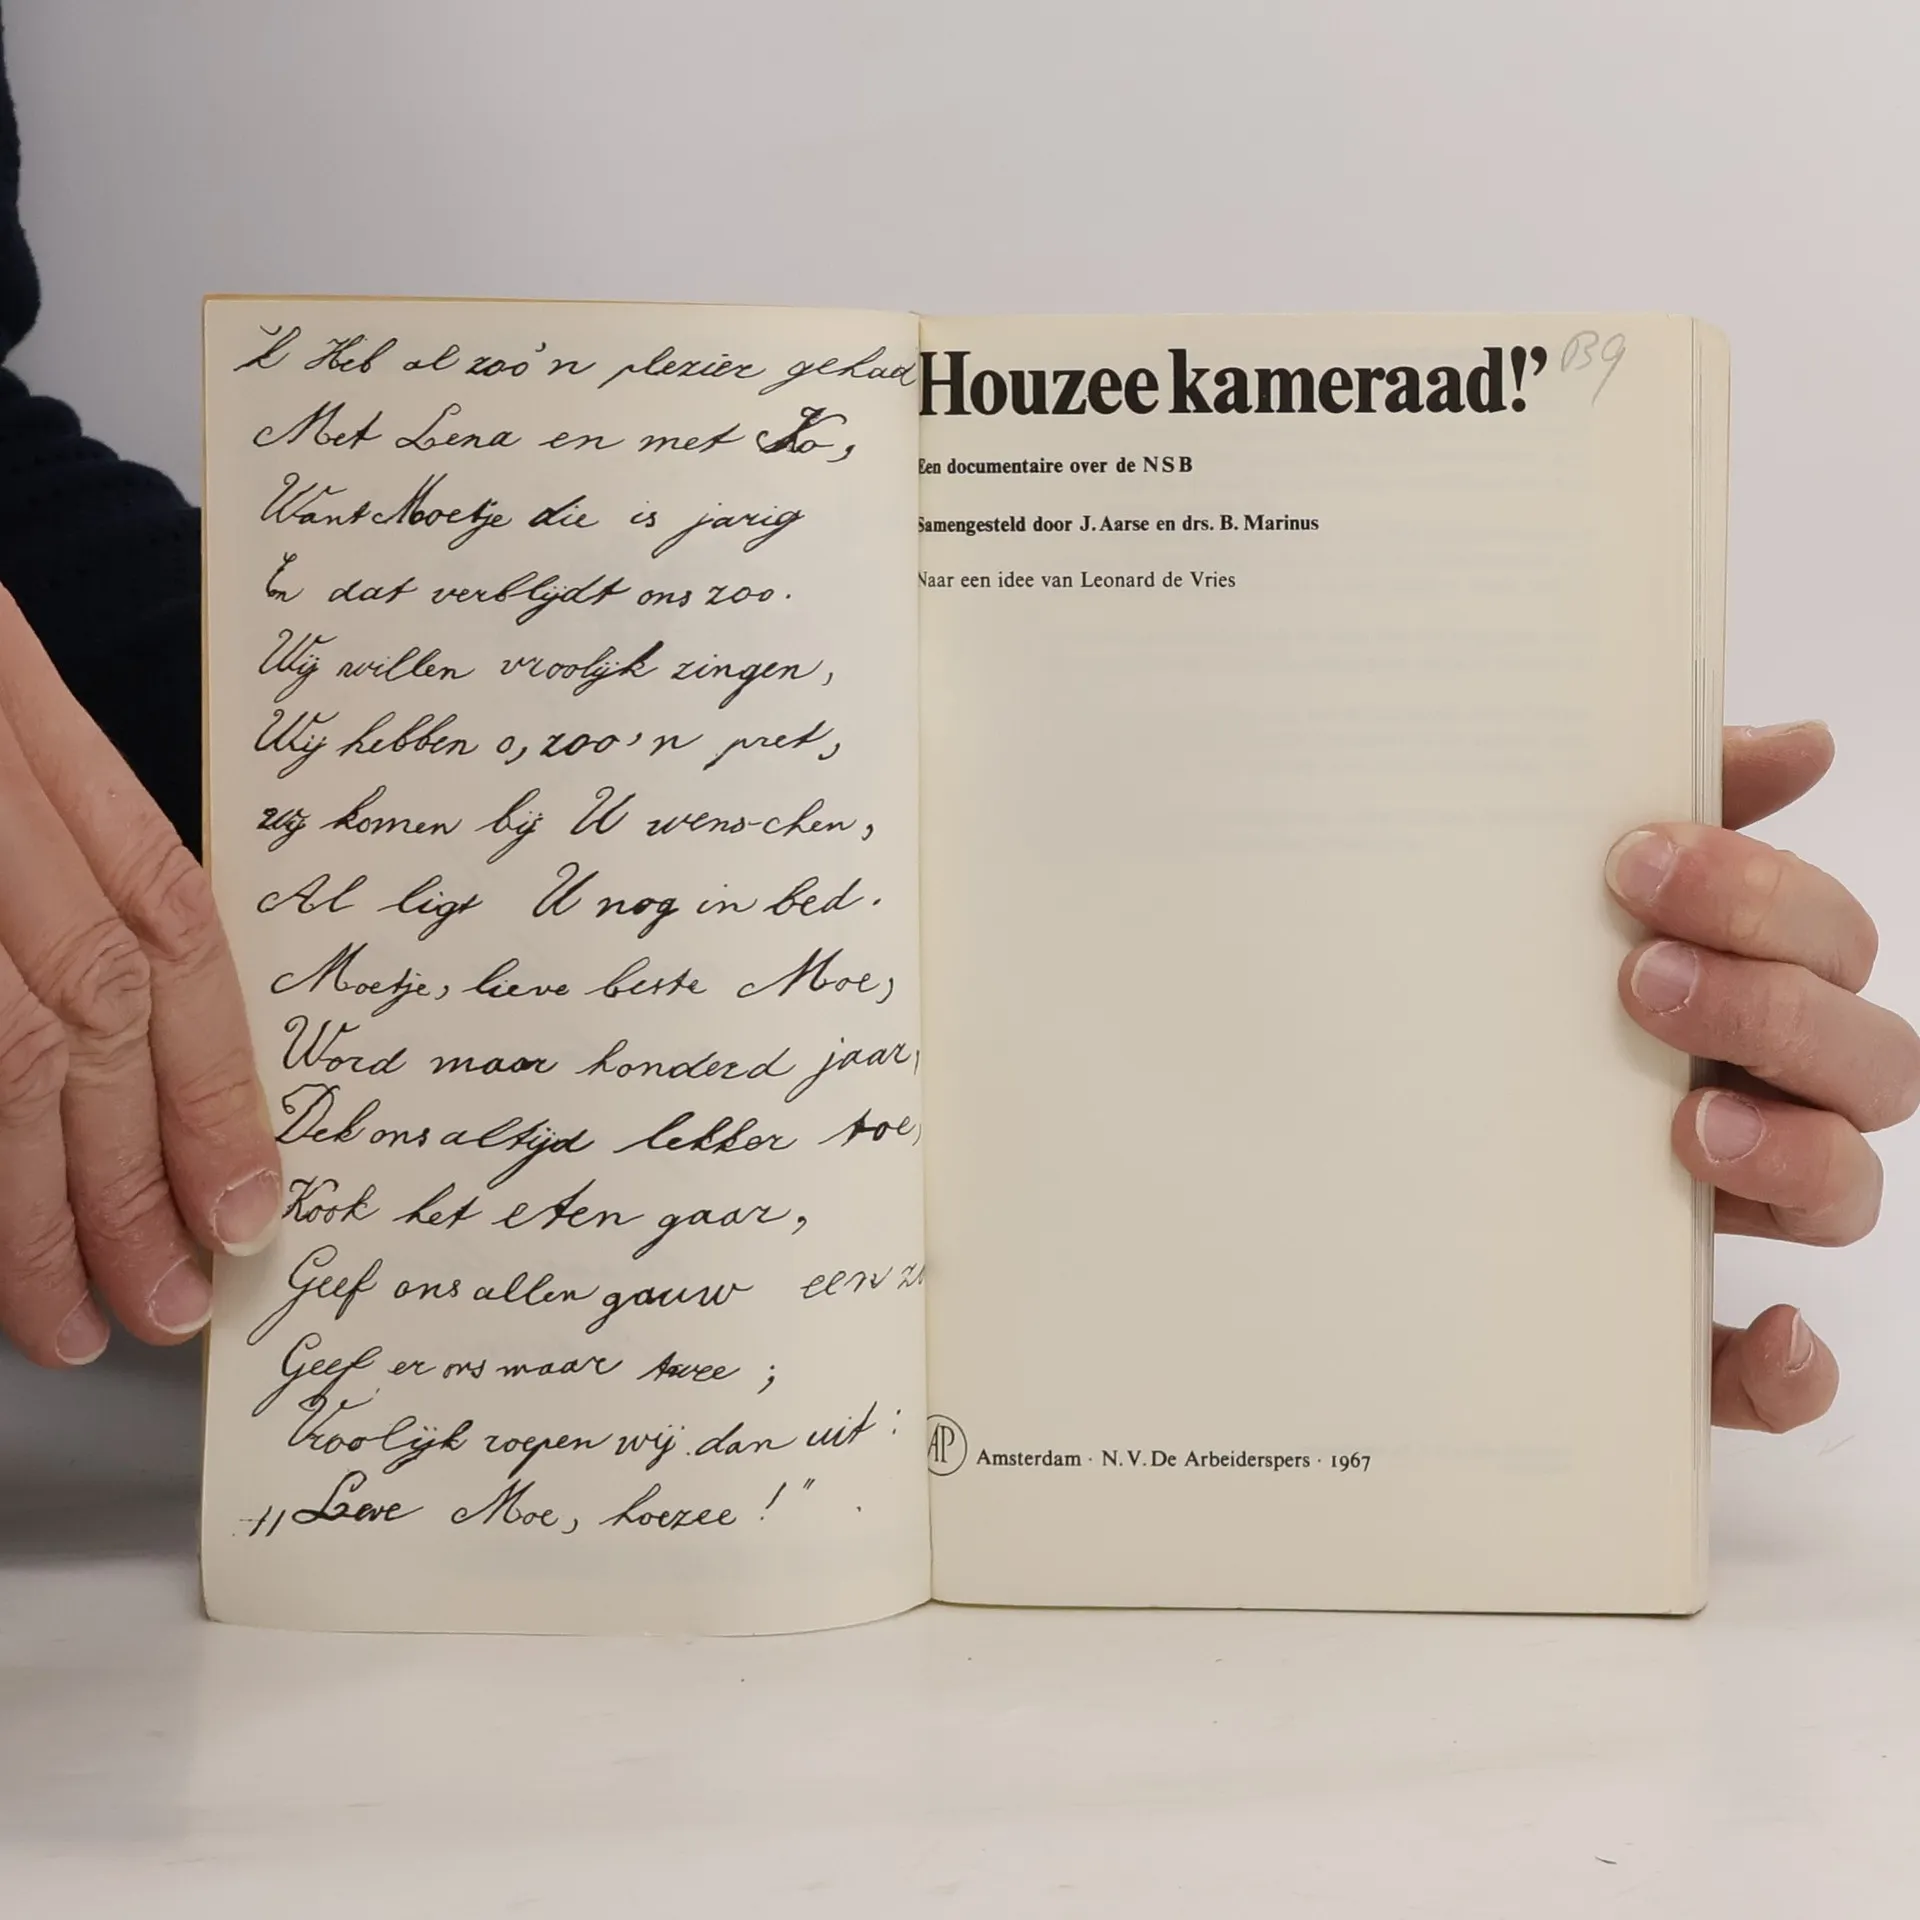 'k Heb al zoo'n plezier gehad
Met Lena en met Ko,
Want Moetje die is jarig
En dat verblijdt ons zoo.
Wij willen vroolijk zingen,
Wij hebben o, zoo'n pret,
Wij komen bij U wenschen,
Al ligt U nog in bed.
Moetje, lieve beste Moe,
Word maar honderd jaar,
Dek ons altijd lekker toe,
Kook het eten gaar,
Geef ons allen gauw een
Geef er ons maar twee;
Vroolijk roepen wij dan uit:
"Lieve Moe, hoezee!"
Houzee kameraad!”
B9
Een documentaire over de NSB
Samengesteld door J. Aarse en drs. B. Marinus
Naar een idee van Leonard de Vries
AP
Amsterdam · N.V. De Arbeiderspers · 1967